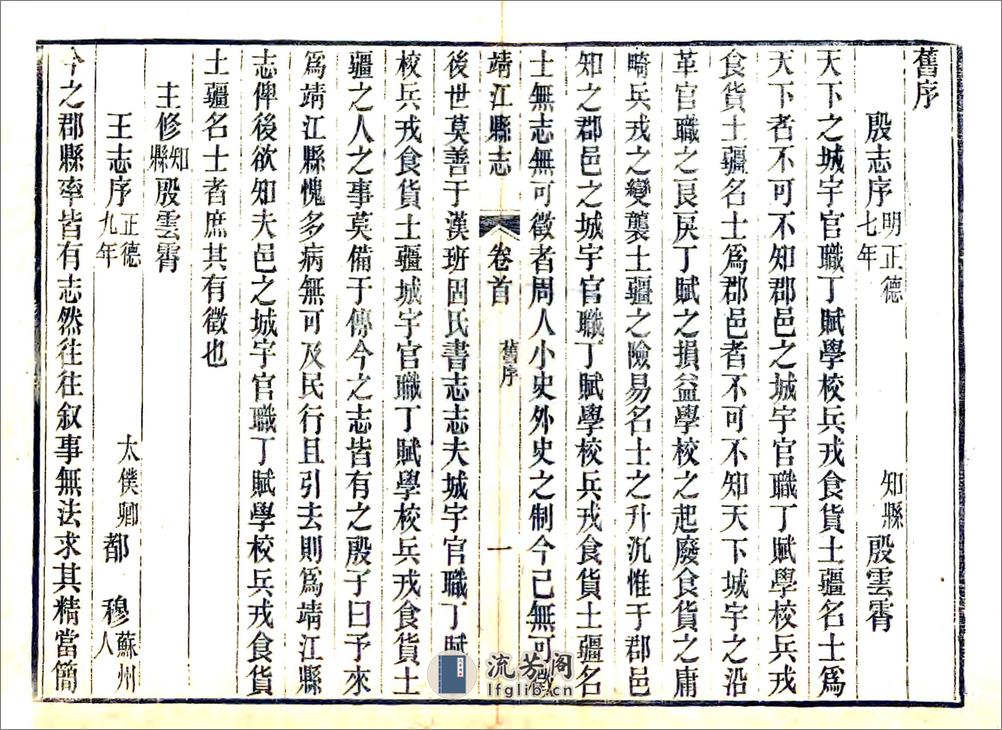 舊序
殷志序 明正德七年 知縣 殷雲霄
天下之城宇官職丁賦學校兵戎食貨土疆名士爲
天下者不可不知郡邑之城宇官職丁賦學校兵戎
食貨土疆名士爲郡邑者不可不知天下城宇之沿
革官職之良戾丁賦之損益學校之起廢食貨之庸
畸兵戎之變襲土疆之險易名士之升沉惟于郡邑
知之郡邑之城宇官職丁賦學校兵戎食貨土疆名
士無志無可徵者周人小史外史之制今已無可徵
靖江縣志 卷首 舊序 一
後世莫善于漢班固氏書志志夫城宇官職丁賦
校兵戎食貨土疆城宇官職丁賦學校兵戎食貨土
疆之人之事莫備于傳今之志皆有之殷子曰予來
爲靖江縣愧多病無可及民行且引去則爲靖江縣
志俾後欲知夫邑之城宇官職丁賦學校兵戎食貨
土疆名士者庶其有徵也
主修知縣殷雲霄
王志序 正德九年 太僕卿 都穆 蘇州人
今之郡縣率皆有志然往往叙事無法求其精當簡
流芳阁
lfglib.cn